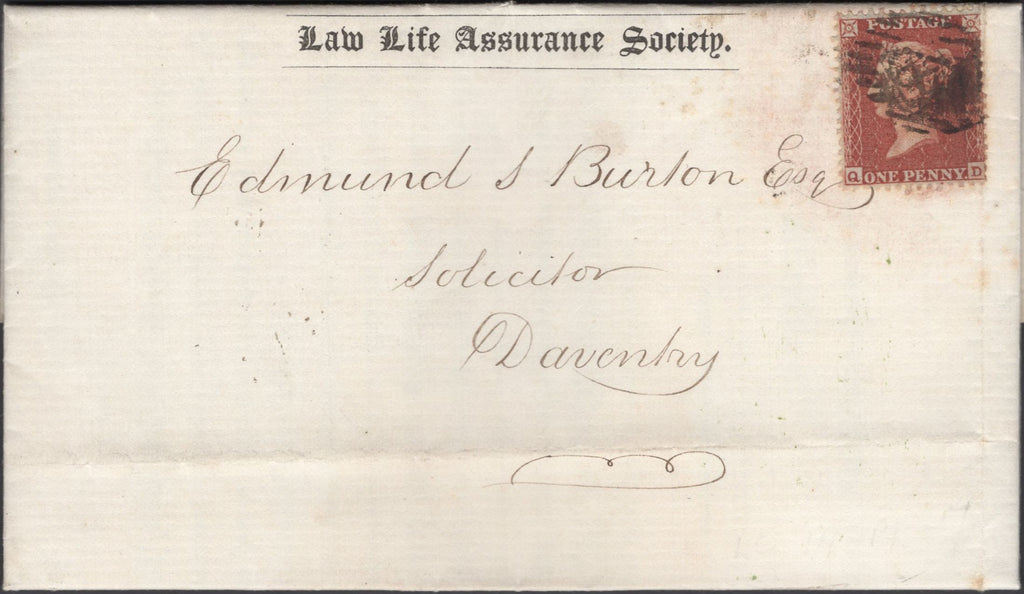 Law Life Assurance Society.
POSTAGE
Edmund S Burton Esq
Q ONE PENNY D
Solicitor
Daventry